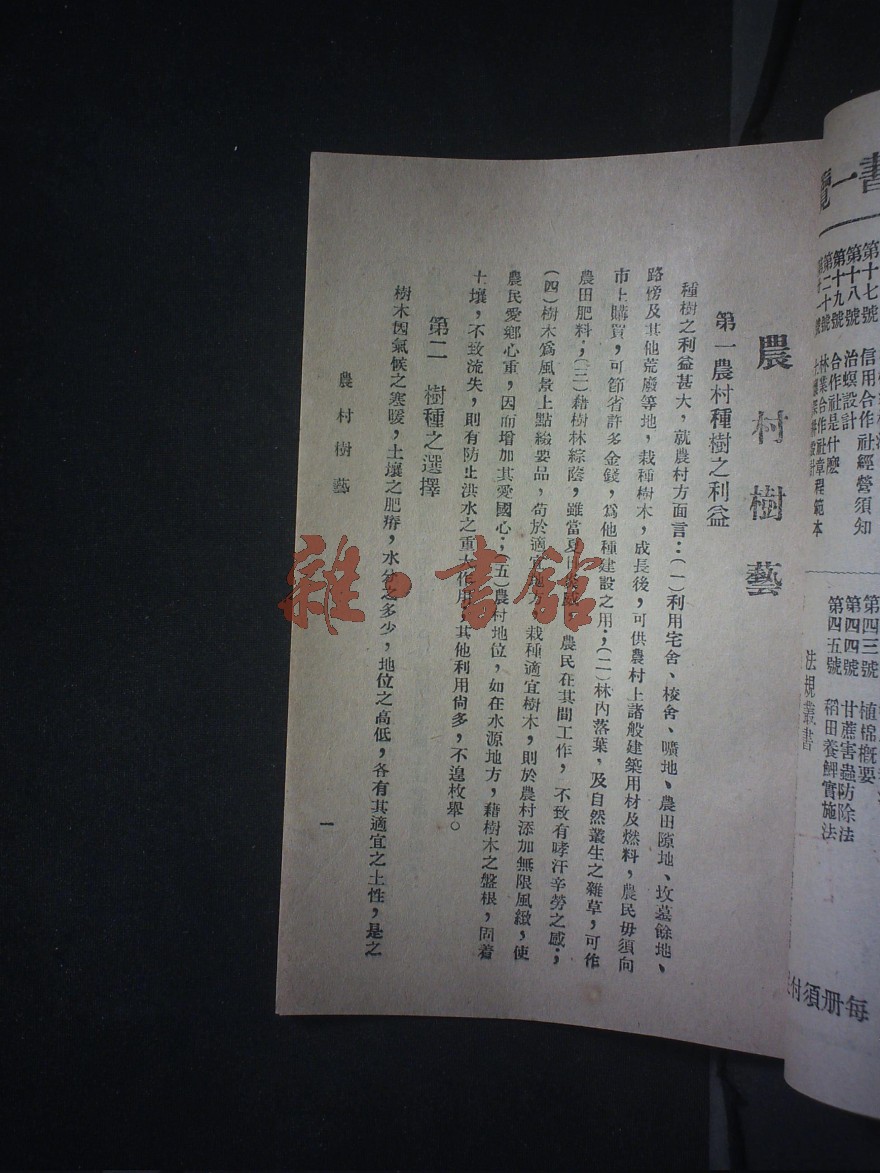 書一覽
第十七號
第十八號 信用合作社經營須知
第十九號 治螟設計
第二十號 合作社是什麼
林業合作社章程範本
第四三號 植棉概要
第四四號 甘蔗害蟲防除法
第四五號 稻田養鯉實施法
法規叢書
每册須付
農村樹藝
第一農村種樹之利益
種樹之利益甚大，就農村方面言：（一）利用宅舍、校舍、曠地、農田隙地、坟墓餘地、
路傍及其他荒廢等地，栽種樹木，成長後，可供農村上諸般建築用材及燃料，農民毋須向
市上購買，可節省許多金錢，爲他種建設之用；（二）林內落葉，及自然叢生之雜草，可作
農田肥料；（三）藉樹林綜蔭，雖當夏日，農民在其間工作，不致有哮汗辛勞之感；
（四）樹木爲風景上點綴要品，苟於適宜地方，栽種適宜樹木，則於農村添加無限風緻，使
農民愛鄉心重，因而增加其愛國心；（五）農村地位，如在水源地方，藉樹木之盤根，固着
土壤，不致流失，則有防止洪水之重大作用，其他利用尙多，不遑枚舉。
第二　樹種之選擇
樹木因氣候之寒暖，土壤之肥瘠，水分之多少，地位之高低，各有其適宜之土性，是之
農村樹藝
一
雜·書館